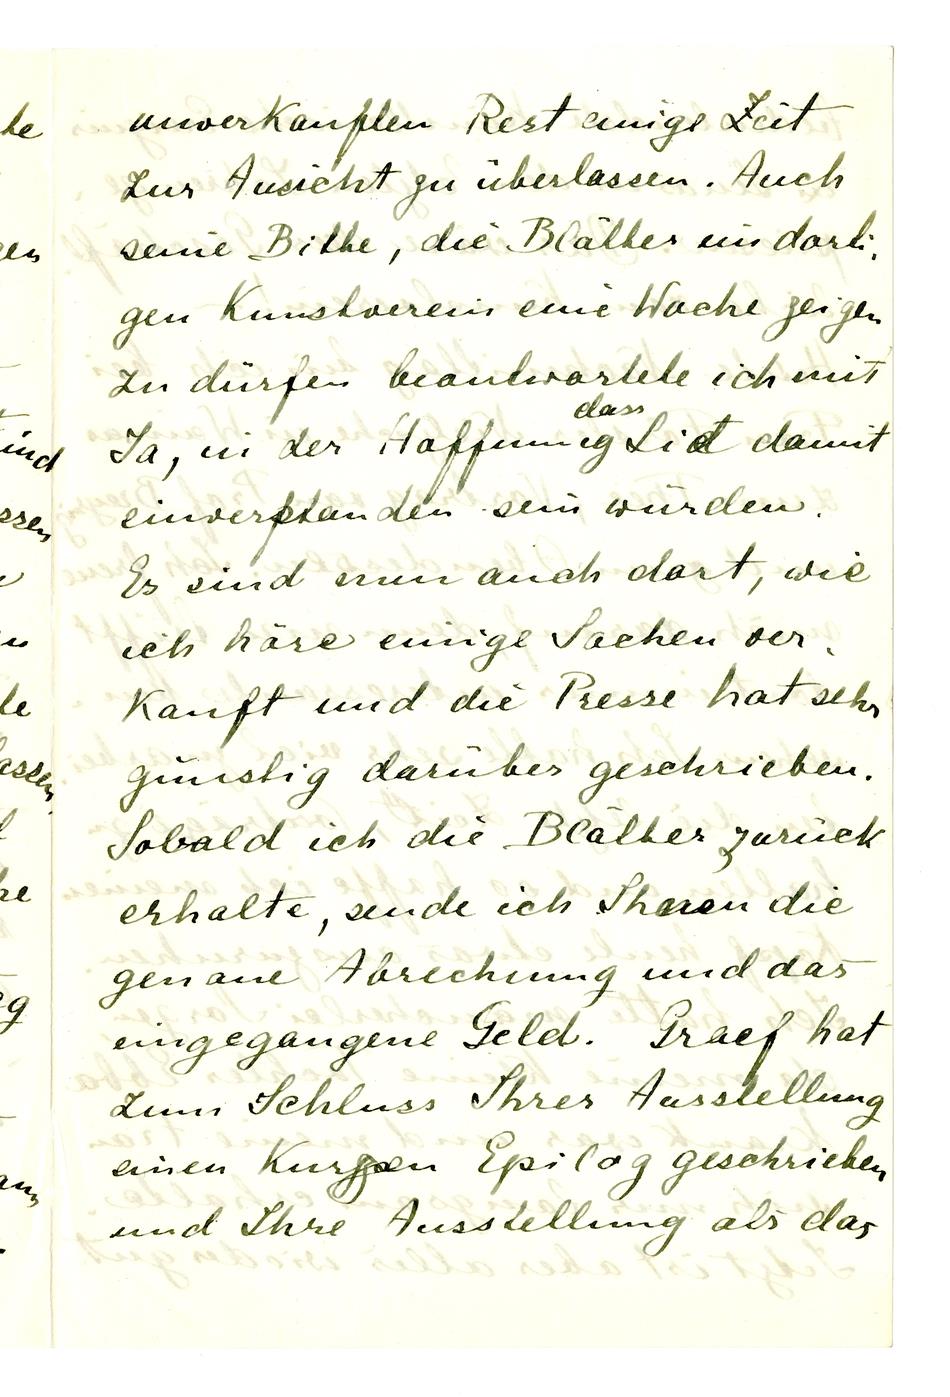 unverkauften Rest einige Zeit
zur Ansicht zu überlassen. Auch
seine Bitte, die Blätter im dorti-
gen Kunstverein eine Woche zeigen
zu dürfen beantwortete ich mit
dass
Ja, in der Hoffnung Sie damit
einverstanden sein würden.
Es sind nun auch dort, wie
ich höre einige Sachen ver-
kauft und die Presse hat sehr
günstig darüber geschrieben.
Sobald ich die Blätter zurück
erhalte, sende ich Ihnen die
genaue Abrechnung und das
eingegangene Geld. Graef hat
zum Schluss Ihrer Ausstellung
einen kurzen Epilog geschrieben
und Ihre Ausstellung als das
te
gen
und
ssen
te
lassen
eg